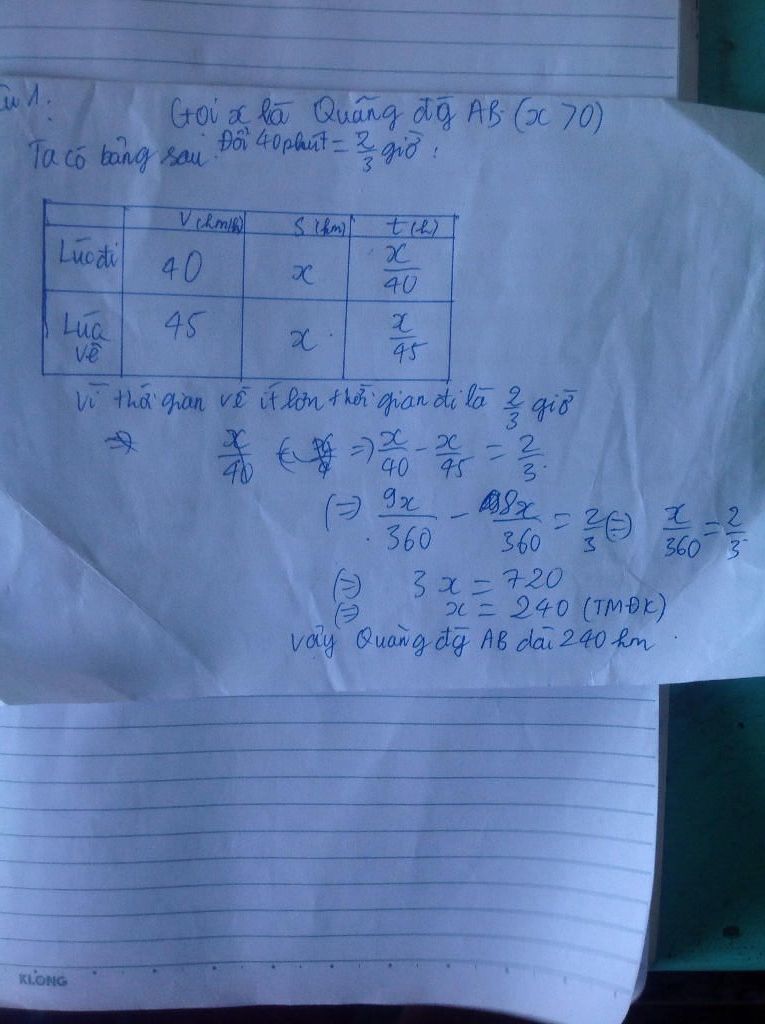 Câu 1:
Gọi x là Quãng đg AB (x > 0)
Đổi 40phút = 2/3 giờ
Ta có bảng sau:
V (km/h) S (km) t (h)
Lúc đi 40 x x/40
Lúc về 45 x x/45
Vì thời gian về ít hơn thời gian đi là 2/3 giờ
x/40 => x/40 - x/45 = 2/3
(=) 9x/360 - 8x/360 = 2/3 (=) x/360 = 2/3
(=) 3x = 720
(=) x = 240 (TMĐK)
Vậy Quãng đg AB dài 240 km
KLONG